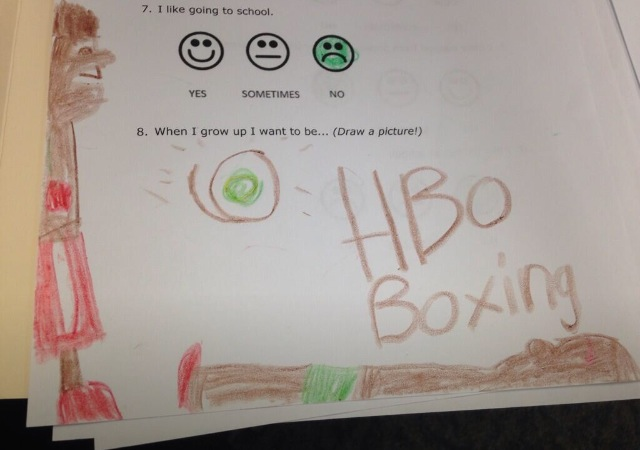 7. I like going to school.
YES SOMETIMES NO
8. When I grow up I want to be... (Draw a picture!)
HBO
Boxing